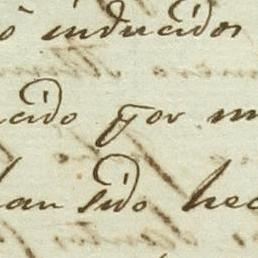 ó inducidos
cido por m
han sido hec